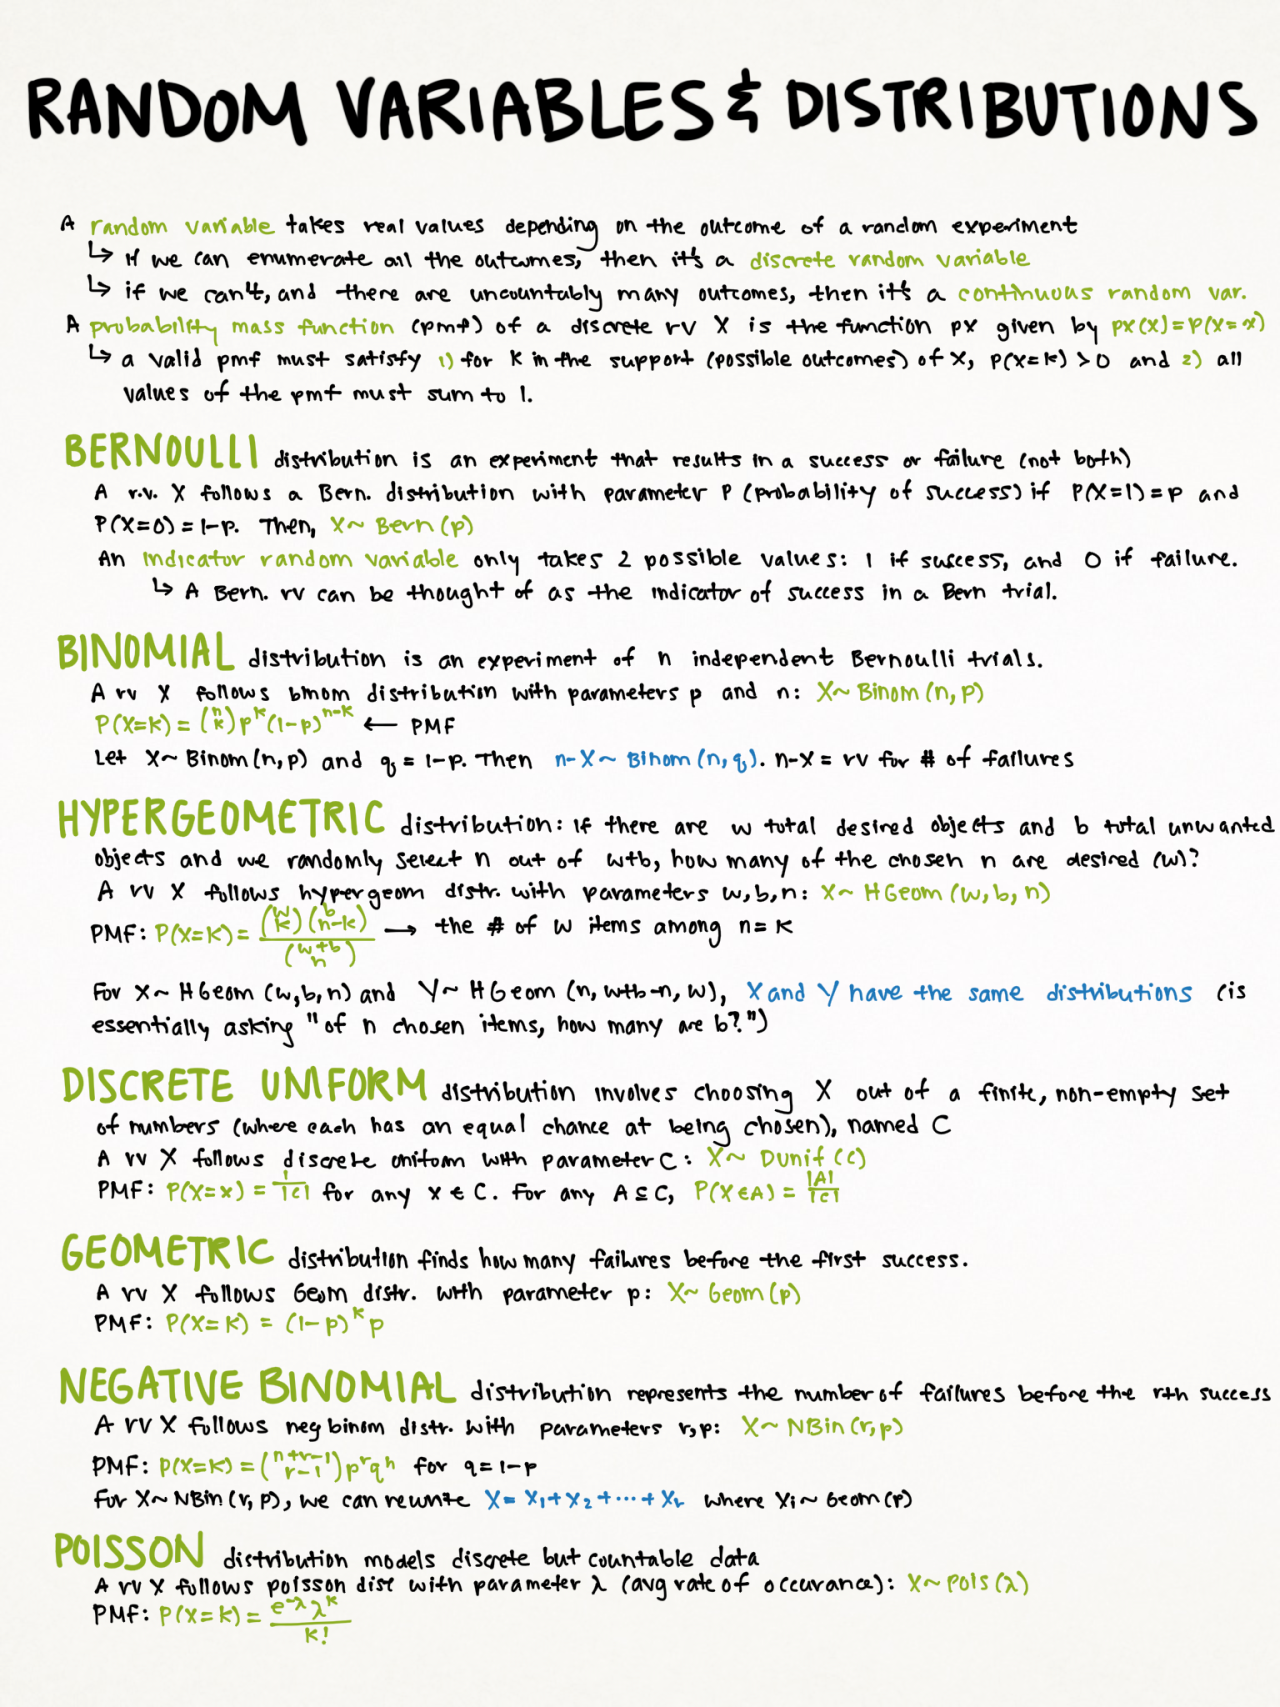 RANDOM VARIABLES & DISTRIBUTIONS
A random variable takes real values depending on the outcome of a random experiment
↳ if we can enumerate all the outcomes, then it's a discrete random variable
↳ if we can't, and there are uncountably many outcomes, then it's a continuous random var.
A probability mass function (pmf) of a discrete rv X is the function px given by px(x)=P(X=x)
↳ a valid pmf must satisfy 1) for k in the support (possible outcomes) of X, P(X=k) > 0 and 2) all
values of the pmf must sum to 1.
BERNOULLI distribution is an experiment that results in a success or failure (not both)
A r.v. X follows a Bern. distribution with parameter P (probability of success) if P(X=1)=p and
P(X=0)=1-p. Then, X~ Bern(p)
An indicator random variable only takes 2 possible values: 1 if success, and 0 if failure.
↳ A Bern. rv can be thought of as the indicator of success in a Bern trial.
BINOMIAL distribution is an experiment of n independent Bernoulli trials.
A rv X follows binom distribution with parameters p and n: X~ Binom(n,p)
P(X=k) = (n k) p^k (1-p)^n-k ← PMF
Let X~ Binom(n,p) and q = 1-p. Then n-X ~ Binom(n,q). n-X = rv for # of failures
HYPERGEOMETRIC distribution: if there are w total desired objects and b total unwanted
objects and we randomly select n out of w+b, how many of the chosen n are desired (w)?
A rv X follows hypergeom distr. with parameters w,b,n: X~ HGeom(w,b,n)
PMF: P(X=k) = (w k)(b n-k) / (w+b n) → the # of w items among n = k
For X~ HGeom(w,b,n) and Y~ HGeom(n, w+b-n, w), X and Y have the same distributions (is
essentially asking "of n chosen items, how many are b?")
DISCRETE UNIFORM distribution involves choosing X out of a finite, non-empty set
of numbers (where each has an equal chance at being chosen), named C
A rv X follows discrete uniform with parameter C: X~ DUnif(C)
PMF: P(X=x) = 1/|C| for any x ∈ C. For any A ⊆ C, P(X∈A) = |A|/|C|
GEOMETRIC distribution finds how many failures before the first success.
A rv X follows Geom distr. with parameter p: X~ Geom(p)
PMF: P(X=k) = (1-p)^k p
NEGATIVE BINOMIAL distribution represents the number of failures before the rth success
A rv X follows neg binom distr. with parameters r,p: X~ NBin(r,p)
PMF: P(X=k) = (n+r-1 r-1) p^r q^n for q=1-p
For X~ NBin(r,p), we can rewrite X = X₁+X₂+···+Xr where Xi ~ Geom(p)
POISSON distribution models discrete but countable data
A rv X follows poisson dist with parameter λ (avg rate of occurance): X~ Pois(λ)
PMF: P(X=k) = e^-λ λ^k / k!